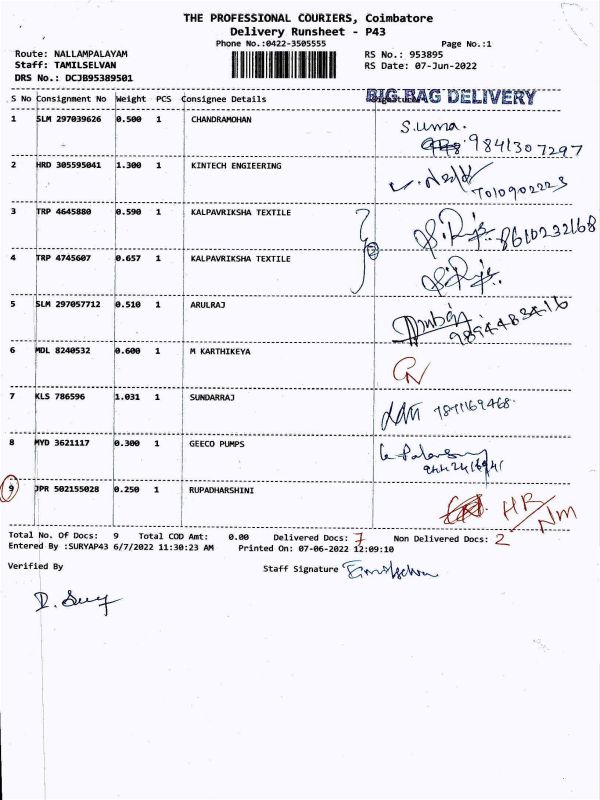 THE PROFESSIONAL COURIERS, Coimbatore
Delivery Runsheet - P43
Phone No.:0422-3505555 Page No.:1
Route: NALLAMPALAYAM RS No.: 953895
Staff: TAMILSELVAN RS Date: 07-Jun-2022
DRS No.: DCJB95389501
BIG BAG DELIVERY
S No Consignment No Weight PCS Consignee Details Signature
1 SLM 297039626 0.500 1 CHANDRAMOHAN S.uma. 9841307297
2 HRD 305595041 1.300 1 KINTECH ENGIEERING 7010902223
3 TRP 4645880 0.590 1 KALPAVRIKSHA TEXTILE 8610232168
4 TRP 4745607 0.657 1 KALPAVRIKSHA TEXTILE
2
5 SLM 297057712 0.510 1 ARULRAJ 9894483416
6 MDL 8240532 0.600 1 M KARTHIKEYA
7 KLS 786596 1.031 1 SUNDARRAJ
8 MYD 3621117 0.300 1 GEECO PUMPS
9 JPR 502155028 0.250 1 RUPADHARSHINI HR/NM
Total No. Of Docs: 9 Total COD Amt: 0.00 Delivered Docs: 7 Non Delivered Docs: 2
Entered By :SURYAP43 6/7/2022 11:30:23 AM Printed On: 07-06-2022 12:09:10
Verified By Staff Signature